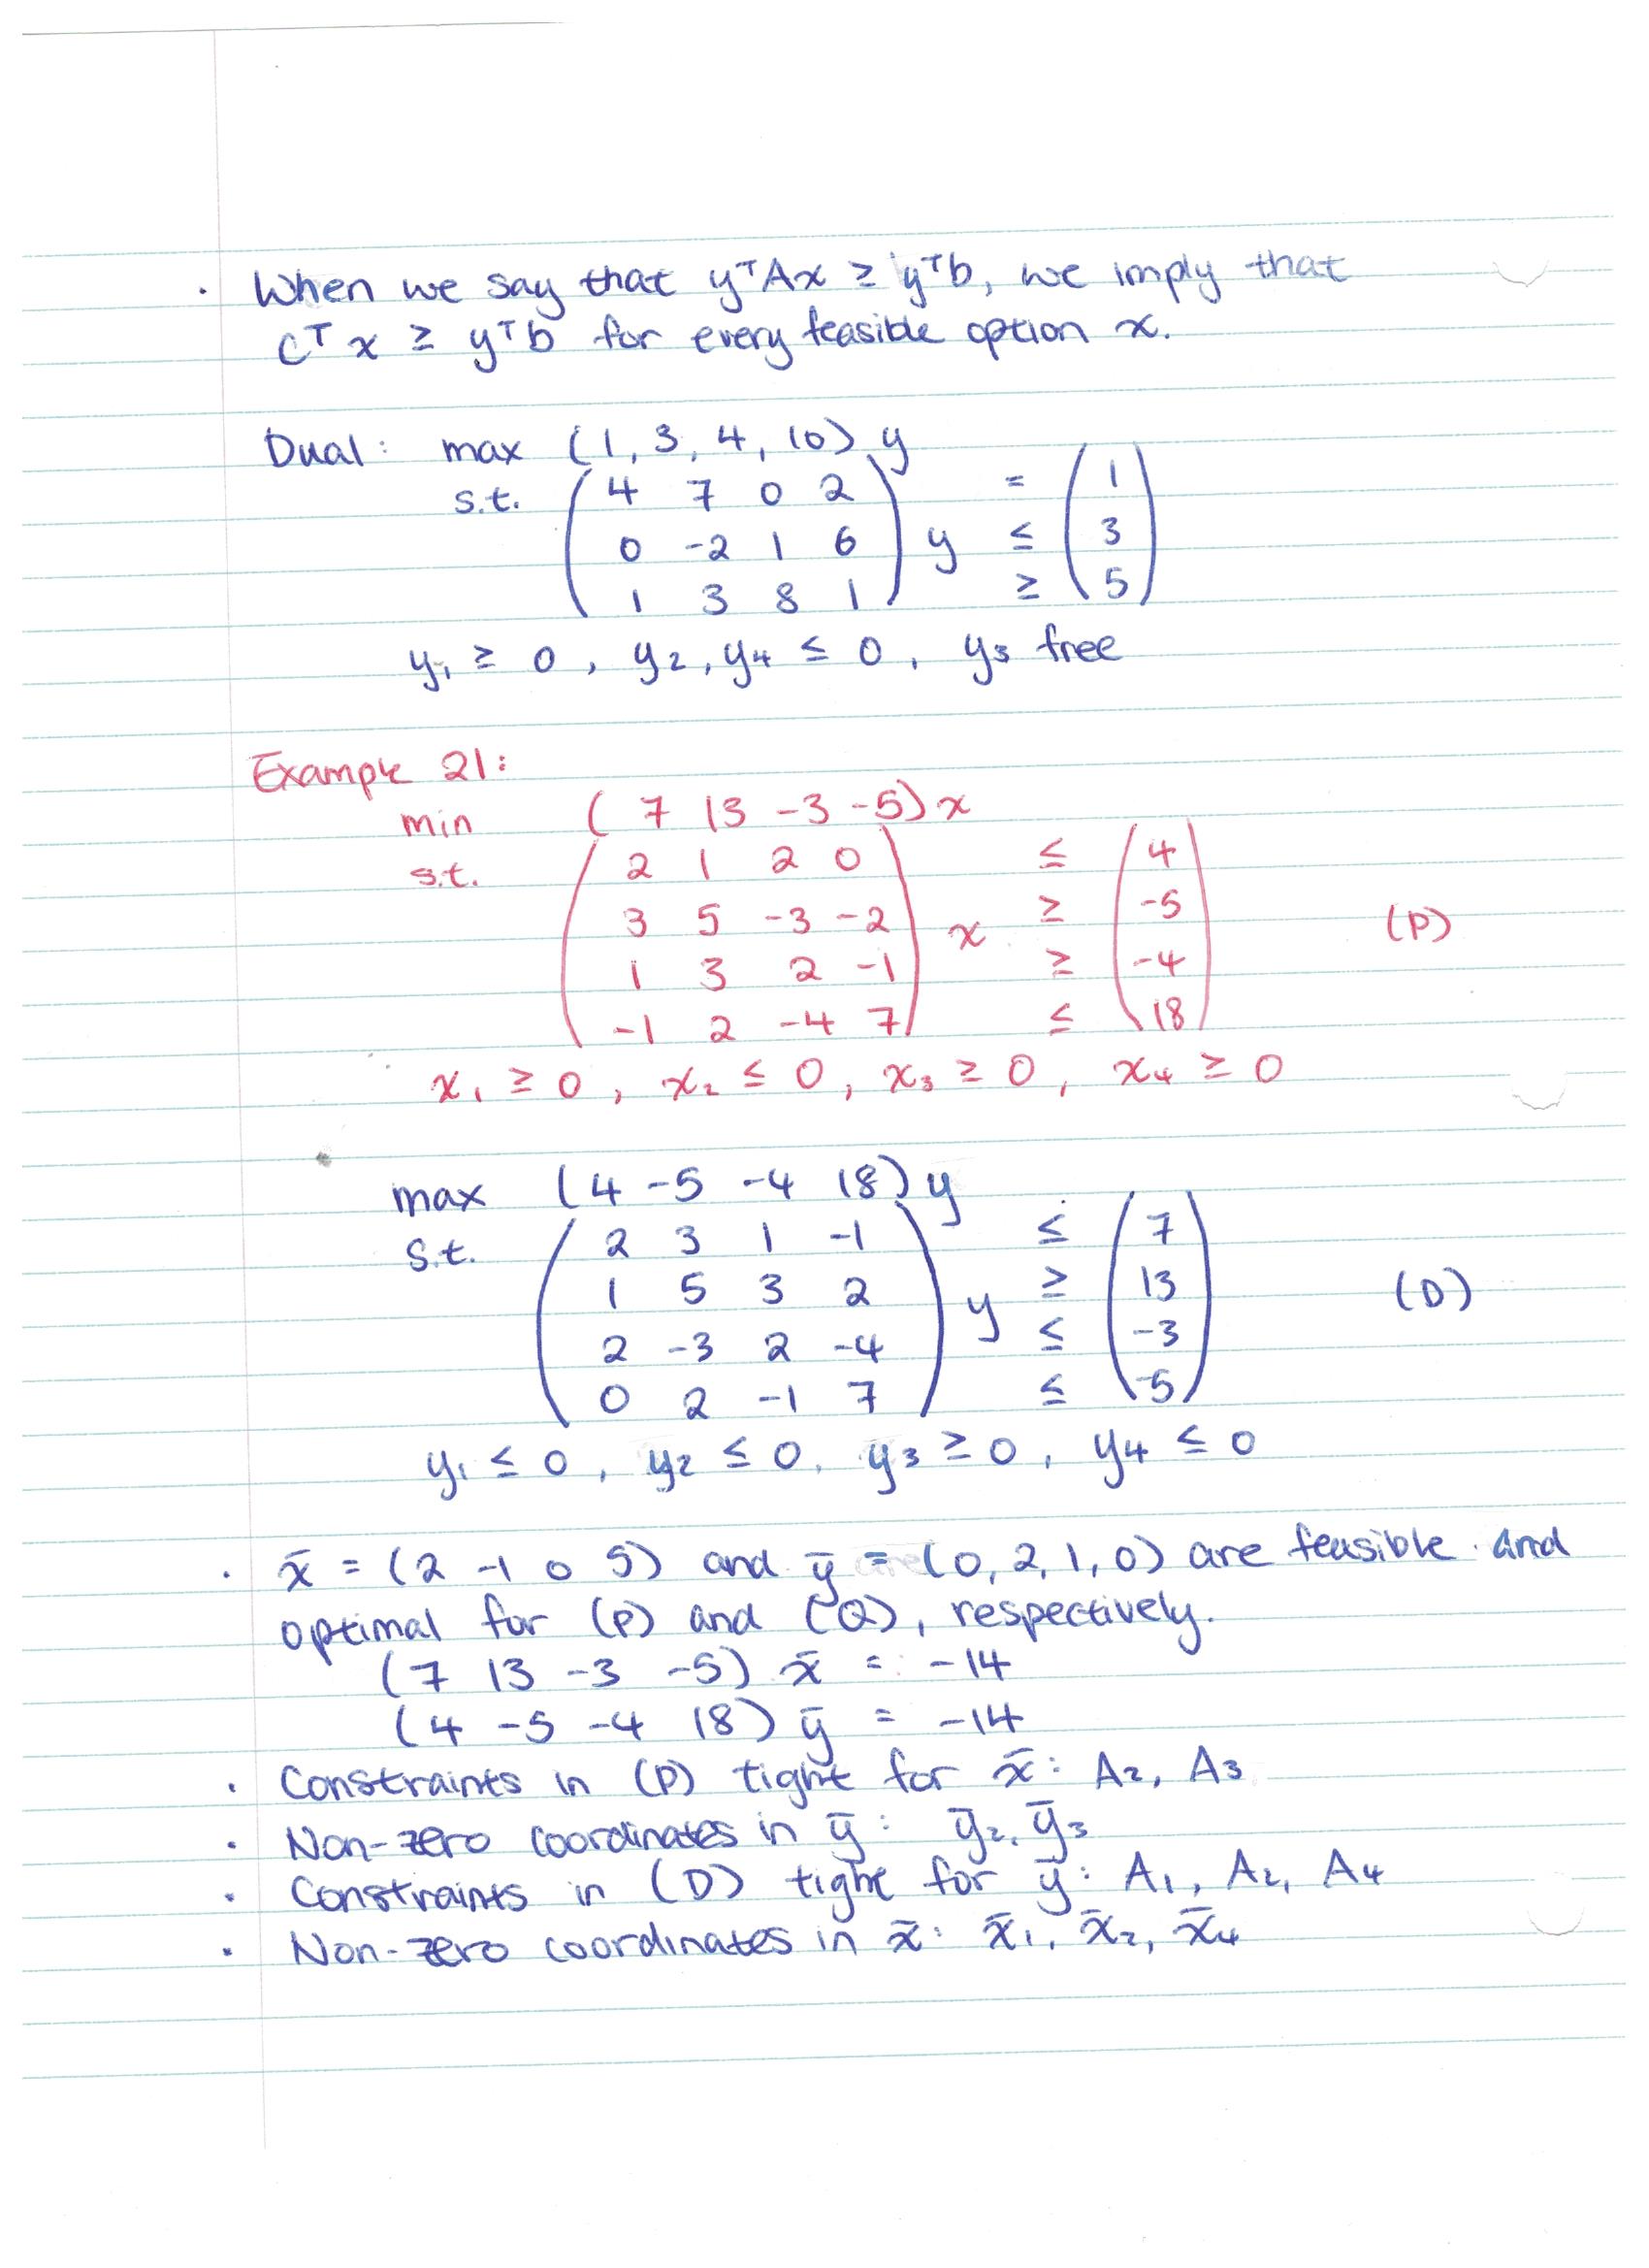 . When we say that yᵀAx ≥ yᵀb, we imply that
cᵀx ≥ yᵀb for every feasible option x.
Dual: max (1, 3, 4, 10) y
s.t. ( 4 7 0 2 ) = ( 1 )
( 0 -2 1 6 ) y ≤ ( 3 )
( 1 3 8 1 ) ≥ ( 5 )
y₁ ≥ 0, y₂, y₄ ≤ 0, y₃ free
Example 21:
min ( 7 13 -3 -5) x
s.t. ( 2 1 2 0 ) ≤ ( 4 )
( 3 5 -3 -2 ) x ≥ ( -5 ) (P)
( 1 3 2 -1 ) ≥ ( -4 )
( -1 2 -4 7 ) ≤ ( 18 )
x₁ ≥ 0, x₂ ≤ 0, x₃ ≥ 0, x₄ ≥ 0
max (4 -5 -4 18) y
s.t. ( 2 3 1 -1 ) ≤ ( 7 )
( 1 5 3 2 ) y ≥ ( 13 ) (D)
( 2 -3 2 -4 ) ≤ ( -3 )
( 0 2 -1 7 ) ≤ ( -5 )
y₁ ≤ 0, y₂ ≤ 0, y₃ ≥ 0, y₄ ≤ 0
. x̄ = (2 -1 0 5) and ȳ = (0, 2, 1, 0) are feasible and
optimal for (P) and (Q), respectively.
(7 13 -3 -5) x̄ = -14
(4 -5 -4 18) ȳ = -14
. Constraints in (P) tight for x̄: A₂, A₃
. Non-zero coordinates in ȳ: ȳ₂, ȳ₃
. Constraints in (D) tight for ȳ: A₁, A₂, A₄
. Non-zero coordinates in x̄: x̄₁, x̄₂, x̄₄